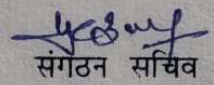 संगठन सचिव